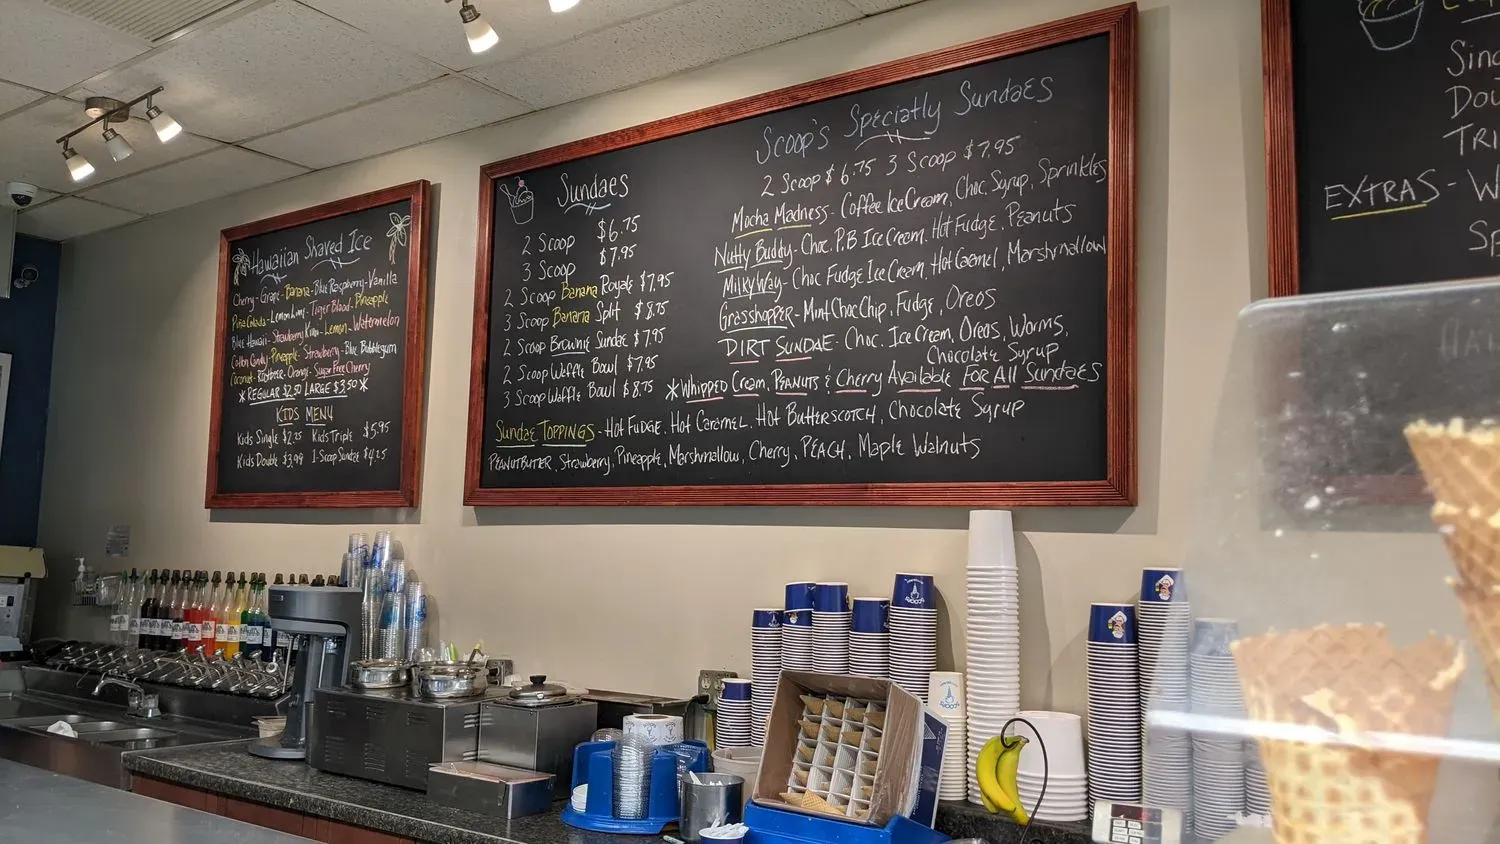 Hawaiian Shaved Ice
Cherry - Grape - Banana - Blue Raspberry - Vanilla
Piña Colada - Lemon Lime - Tiger Blood - Pineapple
Blue Hawaii - Strawberry Kiwi - Lemon - Watermelon
Cotton Candy - Pineapple - Strawberry - Blue Bubblegum
Coconut - Rootbeer - Orange - Sugar Free Cherry
* REGULAR $2.50 LARGE $3.50 *
KIDS MENU
Kids Single $2.25 Kids Triple $5.95
Kids Double $3.99 1-Scoop Sundae $4.25
Sundaes
2 Scoop $6.75
3 Scoop $7.95
2 Scoop Banana Royale $7.95
3 Scoop Banana Split $8.75
2 Scoop Brownie Sundae $7.95
2 Scoop Waffle Bowl $7.95
3 Scoop Waffle Bowl $8.75
Scoop's Specialty Sundaes
2 Scoop $6.75 3 Scoop $7.95
Mocha Madness - Coffee Ice Cream, Choc. Syrup, Sprinkles
Nutty Buddy - Choc. P.B Ice Cream, Hot Fudge, Peanuts
Milky Way - Choc Fudge Ice Cream, Hot Caramel, Marshmallow
Grasshopper - Mint Choc Chip, Fudge, Oreos
DIRT SUNDAE - Choc. Ice Cream, Oreos, Worms,
Chocolate Syrup
* Whipped Cream, Peanuts & Cherry Available For All Sundaes
Sundae TOPPINGS - Hot Fudge, Hot Caramel, Hot Butterscotch, Chocolate Syrup
PEANUT BUTTER, Strawberry, Pineapple, Marshmallow, Cherry, PEACH, Maple Walnuts
EXTRAS -